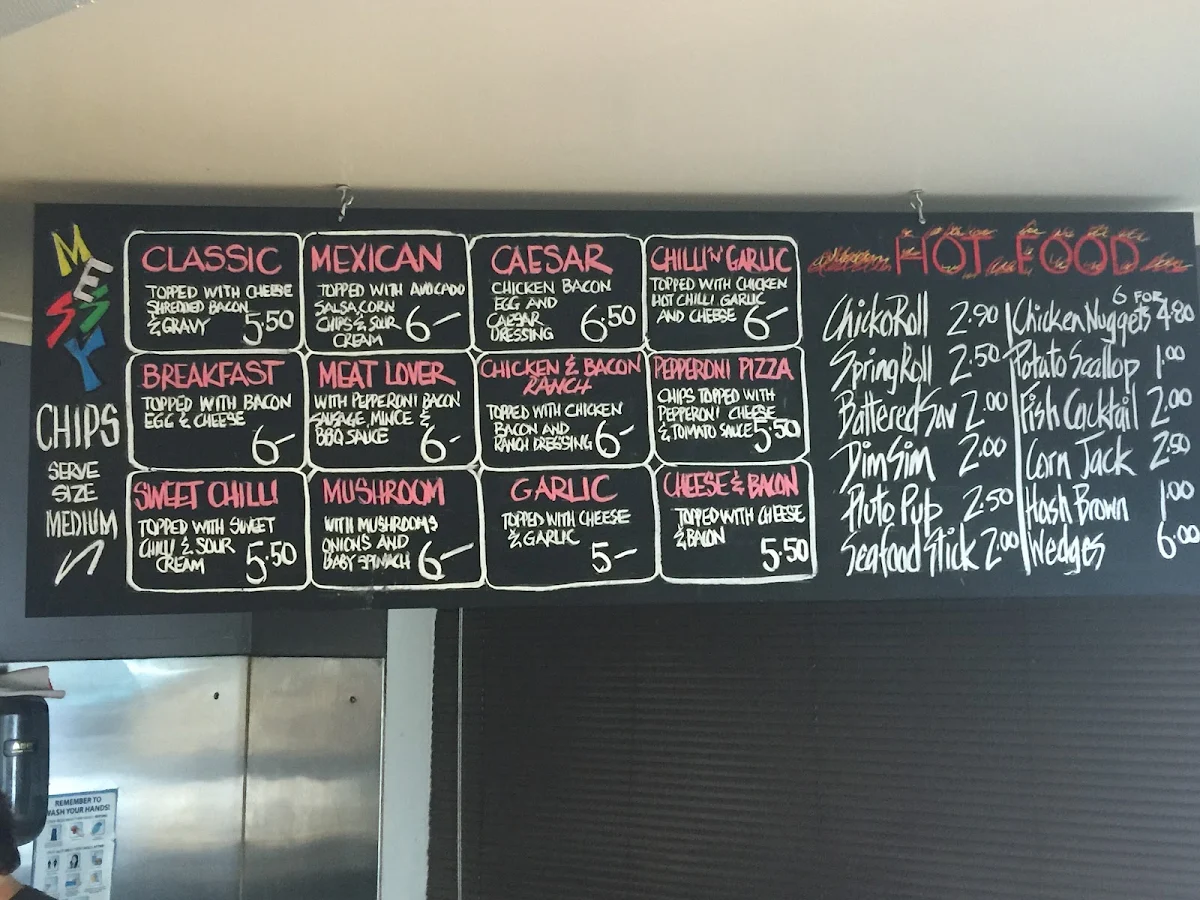 MESSY
CHIPS
SERVE
SIZE
MEDIUM
CLASSIC
TOPPED WITH CHEESE
SHREDDED BACON
& GRAVY 5.50
MEXICAN
TOPPED WITH AVOCADO
SALSA, CORN
CHIPS & SOUR
CREAM 6-
CAESAR
CHICKEN BACON
EGG AND
CAESAR
DRESSING 6.50
CHILLI 'N' GARLIC
TOPPED WITH CHICKEN
HOT CHILLI, GARLIC
AND CHEESE 6-
BREAKFAST
TOPPED WITH BACON
EGG & CHEESE
6-
MEAT LOVER
WITH PEPPERONI BACON
SAUSAGE, MINCE &
BBQ SAUCE 6-
CHICKEN & BACON
RANCH
TOPPED WITH CHICKEN
BACON AND
RANCH DRESSING 6-
PEPPERONI PIZZA
CHIPS TOPPED WITH
PEPPERONI CHEESE
& TOMATO SAUCE 5.50
SWEET CHILLI
TOPPED WITH SWEET
CHILLI & SOUR
CREAM 5.50
MUSHROOM
WITH MUSHROOMS
ONIONS AND
BABY SPINACH 6-
GARLIC
TOPPED WITH CHEESE
& GARLIC
5-
CHEESE & BACON
TOPPED WITH CHEESE
& BACON
5.50
HOT FOOD
Chicko Roll 2.90
Spring Roll 2.50
Battered Sav 2.00
Dim Sim 2.00
Pluto Pup 2.50
Seafood Stick 2.00
6 FOR
Chicken Nuggets 4.80
Potato Scallop 1.00
Fish Cocktail 2.00
Corn Jack 2.50
Hash Brown 1.00
Wedges 6.00
REMEMBER TO
WASH YOUR HANDS!